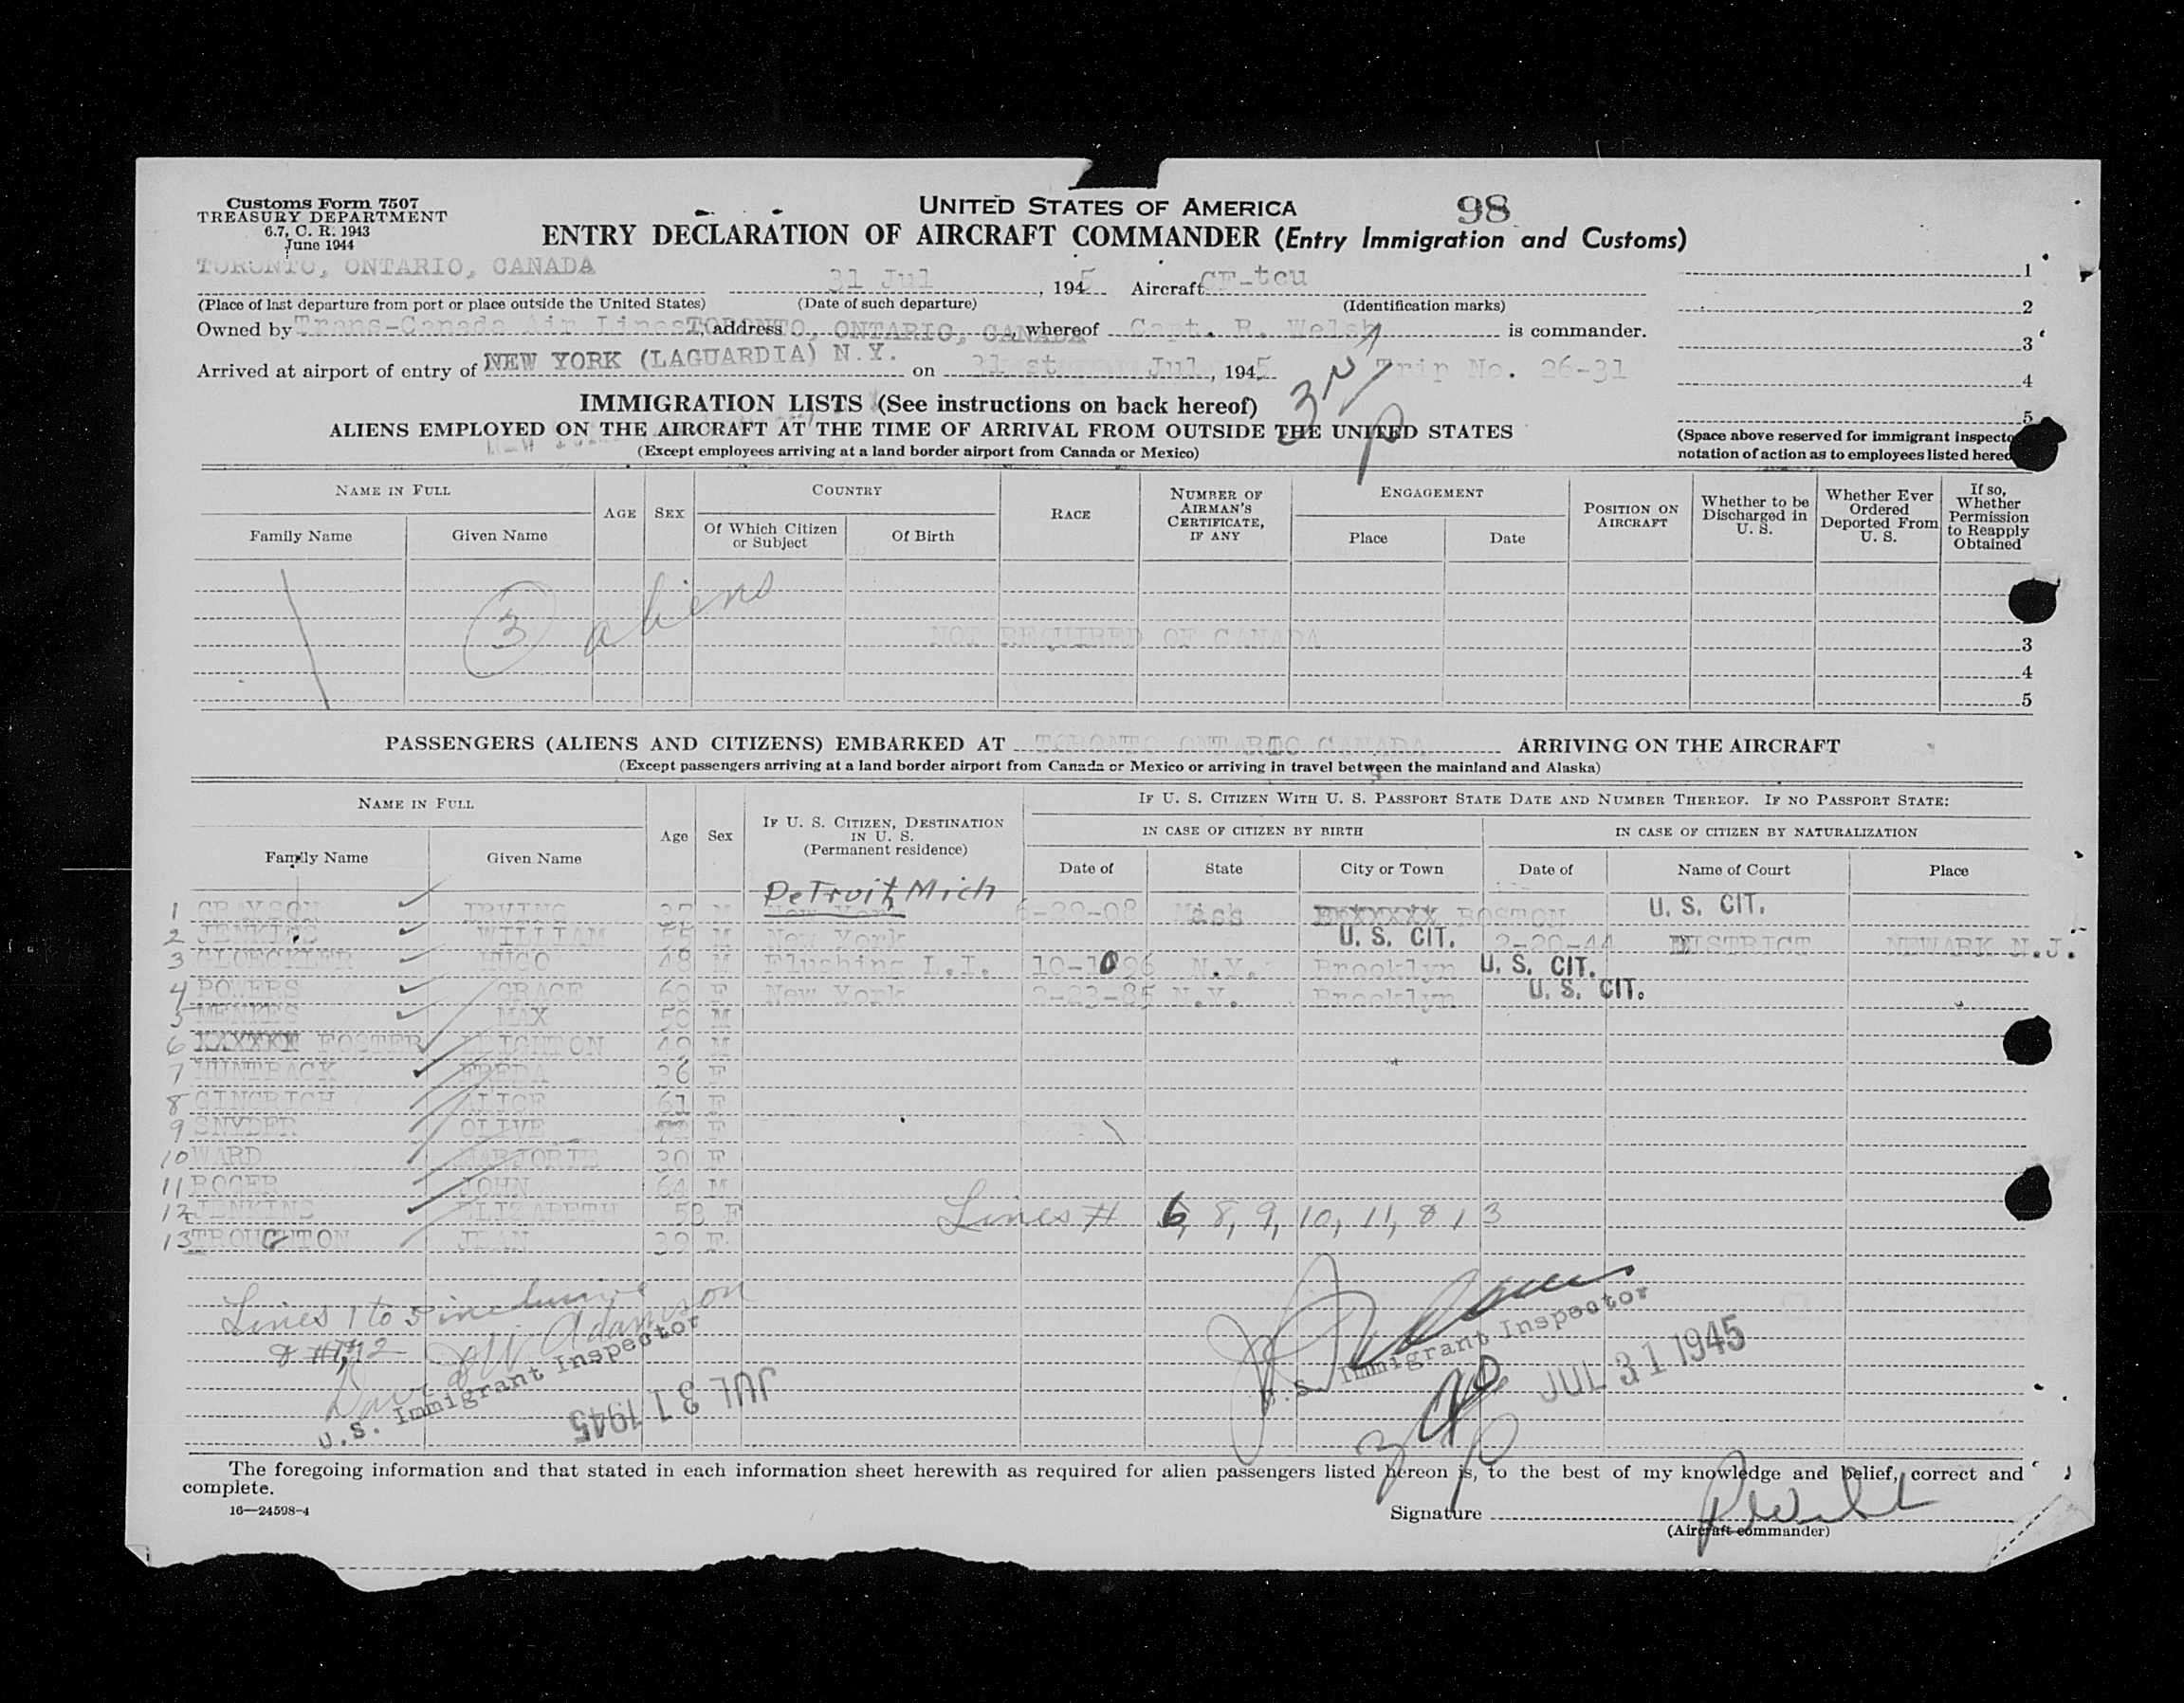 Customs Form 7507
TREASURY DEPARTMENT
6.7, C. R. 1943
June 1944
UNITED STATES OF AMERICA
98
ENTRY DECLARATION OF AIRCRAFT COMMANDER (Entry Immigration and Customs)
TORONTO, ONTARIO, CANADA 31 Jul , 1945 Aircraft CF-tcu 1
(Place of last departure from port or place outside the United States) (Date of such departure) (Identification marks) 2
Owned by Trans-Canada Air Lines, address TORONTO, ONTARIO, CANADA, whereof Capt. R. Welsh is commander. 3
Arrived at airport of entry of NEW YORK (LAGUARDIA) N.Y. on 31 st Jul, 1945 Trip No. 26-31 4
IMMIGRATION LISTS (See instructions on back hereof) 5
ALIENS EMPLOYED ON THE AIRCRAFT AT THE TIME OF ARRIVAL FROM OUTSIDE THE UNITED STATES
(Except employees arriving at a land border airport from Canada or Mexico)
(Space above reserved for immigrant
notation of action as to employees listed
NAME IN FULL AGE SEX COUNTRY RACE NUMBER OF AIRMAN'S CERTIFICATE, IF ANY ENGAGEMENT POSITION ON AIRCRAFT Whether to be Discharged in U. S. Whether Ever Ordered Deported From U. S. If so, Whether Permission to Reapply Obtained
Family Name Given Name Of Which Citizen or Subject Of Birth Place Date
3 aliens
NOT REQUIRED OF CANADA 3
4
5
PASSENGERS (ALIENS AND CITIZENS) EMBARKED AT TORONTO ONTARIO CANADA ARRIVING ON THE AIRCRAFT
(Except passengers arriving at a land border airport from Canada or Mexico or arriving in travel between the mainland and Alaska)
NAME IN FULL Age Sex IF U. S. CITIZEN, DESTINATION IN U. S. (Permanent residence) IF U. S. CITIZEN WITH U. S. PASSPORT STATE DATE AND NUMBER THEREOF. IF NO PASSPORT STATE:
IN CASE OF CITIZEN BY BIRTH IN CASE OF CITIZEN BY NATURALIZATION
Family Name Given Name Date of State City or Town Date of Name of Court Place
Detroit, Mich
1 GRAYSON IRVING 37 M New York 6-29-08 Mass BOSTON U. S. CIT.
2 JENKINS WILLIAM 55 M New York U. S. CIT. 2-20-44 DISTRICT NEWARK N.J.
3 GLUECKLER HUGO 48 M Flushing L.I. 10-10 96 N.Y. Brooklyn U. S. CIT.
4 POWERS GRACE 60 F New York 2-23-85 N.Y. Brooklyn U. S. CIT.
5 MENKES MAX 50 M
6 FOSTER LEIGHTON 40 M
7 FREDA 36 F
8 GINGRICH ALICE 61 F
9 SNYDER OLIVE F
10 WARD MARJORIE 30 F
11 ROGER JOHN 64 M
12 JENKINS ELISABETH 58 F
Lines # 6, 8, 9, 10, 11, & 13
13 TROUGHTON JEAN 39 F
Lines 1 to 5 inclusive
& #7, 12
Adamson
U.S. Immigrant Inspector
JUL 31 1945
U.S. Immigrant Inspector
JUL 31 1945
The foregoing information and that stated in each information sheet herewith as required for alien passengers listed hereon is, to the best of my knowledge and belief, correct and
complete.
16—24598-4
Signature R Welsh
(Aircraft commander)